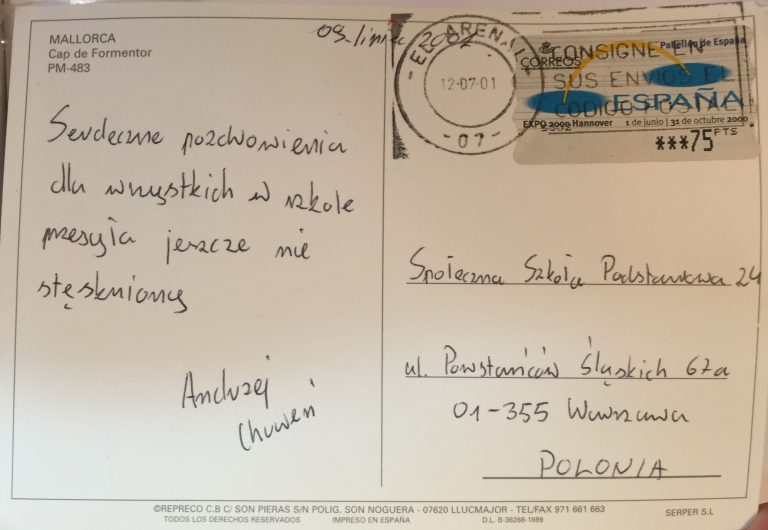 MALLORCA
Cap de Formentor
PM-483
Serdeczne pozdrowienia
dla wszystkich w szkole
przesyła jeszcze nie
stęskniony
Andrzej
09. 2001
EL ARENAL
12-07-01
-07-
CORREOS
Pabellón de España
CONSIGNE EN
SUS ENVIOS EL
CODIGO POSTAL
ESPAÑA
EXPO 2000 Hannover 1 de junio | 31 de octubre 2000
***75 PTS
Społeczna Szkoła Podstawowa 24
ul. Powstańców Śląskich 67a
01-355 Warszawa
POLONIA
©REPRECO C.B C/ SON PIERAS S/N POLIG. SON NOGUERA - 07620 LLUCMAJOR - TEL/FAX 971 661 663
TODOS LOS DERECHOS RESERVADOS IMPRESO EN ESPAÑA D.L. B-36268-1989 SERPER S.L